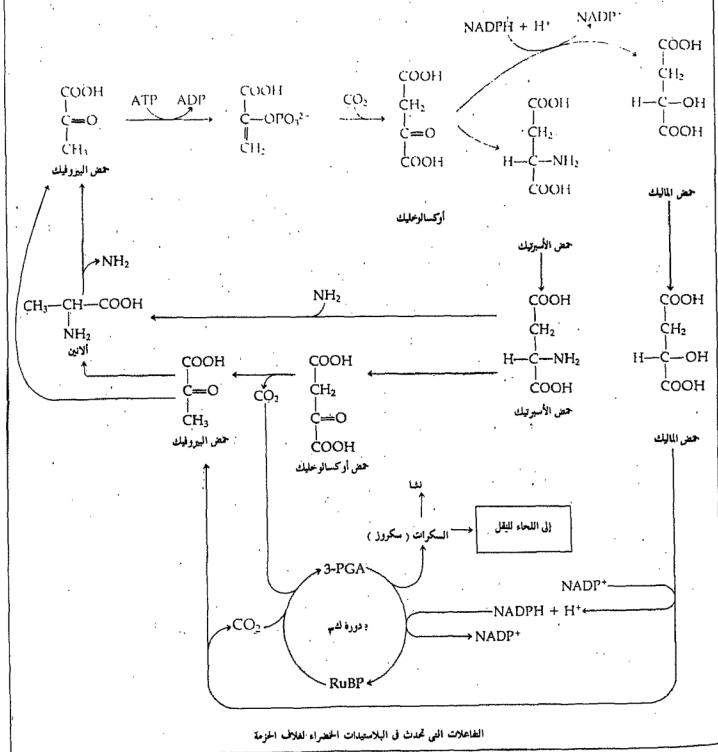 NADPH + H⁺
NADP⁺
COOH
CH₂
H—C—OH
COOH
حمض الماليك
COOH
C=O
CH₃
حمض البيروفيك
ATP
ADP
COOH
C—OPO₃²⁻
CH₂
CO₂
COOH
CH₂
C=O
COOH
أوكسالوخليك
COOH
CH₂
H—C—NH₂
COOH
حمض الأسبرتيك
NH₂
CH₃—CH—COOH
NH₂
ألانين
NH₂
COOH
CH₂
H—C—NH₂
COOH
حمض الأسبرتيك
COOH
CH₂
H—C—OH
COOH
حمض الماليك
COOH
C=O
CH₃
حمض البيروفيك
CO₂
COOH
CH₂
C=O
COOH
حمض أوكسالوخليك
نشا
السكرات ( سكروز )
إلى اللحاء للنقل
3-PGA
CO₂
دورة ك٣
RuBP
NADP⁺
NADPH + H⁺
NADP⁺
التفاعلات التى تحدث فى البلاستيدات الخضراء لغلاف الحزمة